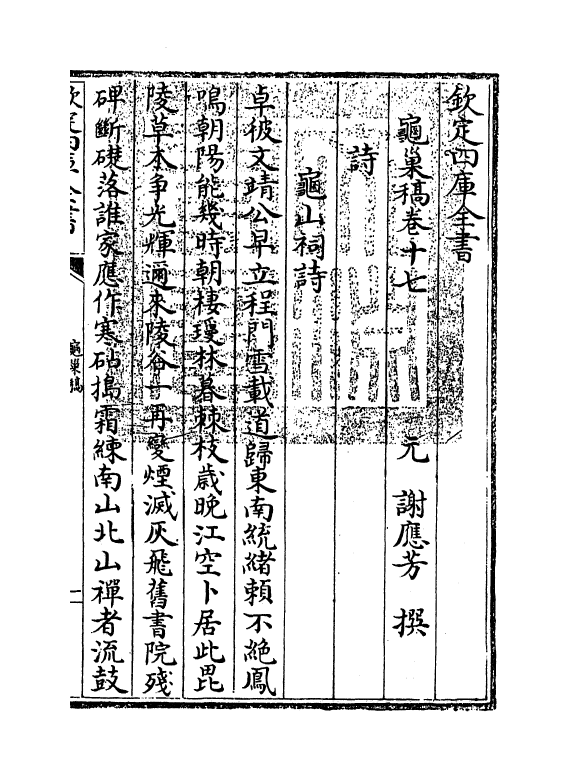 欽定四庫全書
龜巢稿卷十七
元 謝應芳 撰
詩
龜山祠詩
卓彼文靖公早立程門雪載道歸東南統緒賴不絶鳳
鳴朝陽能幾時朝棲瓊林暮棘枝歲晚江空卜居此毘
陵草木争光輝邇來陵谷一再變煙滅灰飛舊書院殘
碑斷礎落誰家應作寒砧搗霜練南山北山禪者流鼓
欽定四庫全書
龜巢稿
一